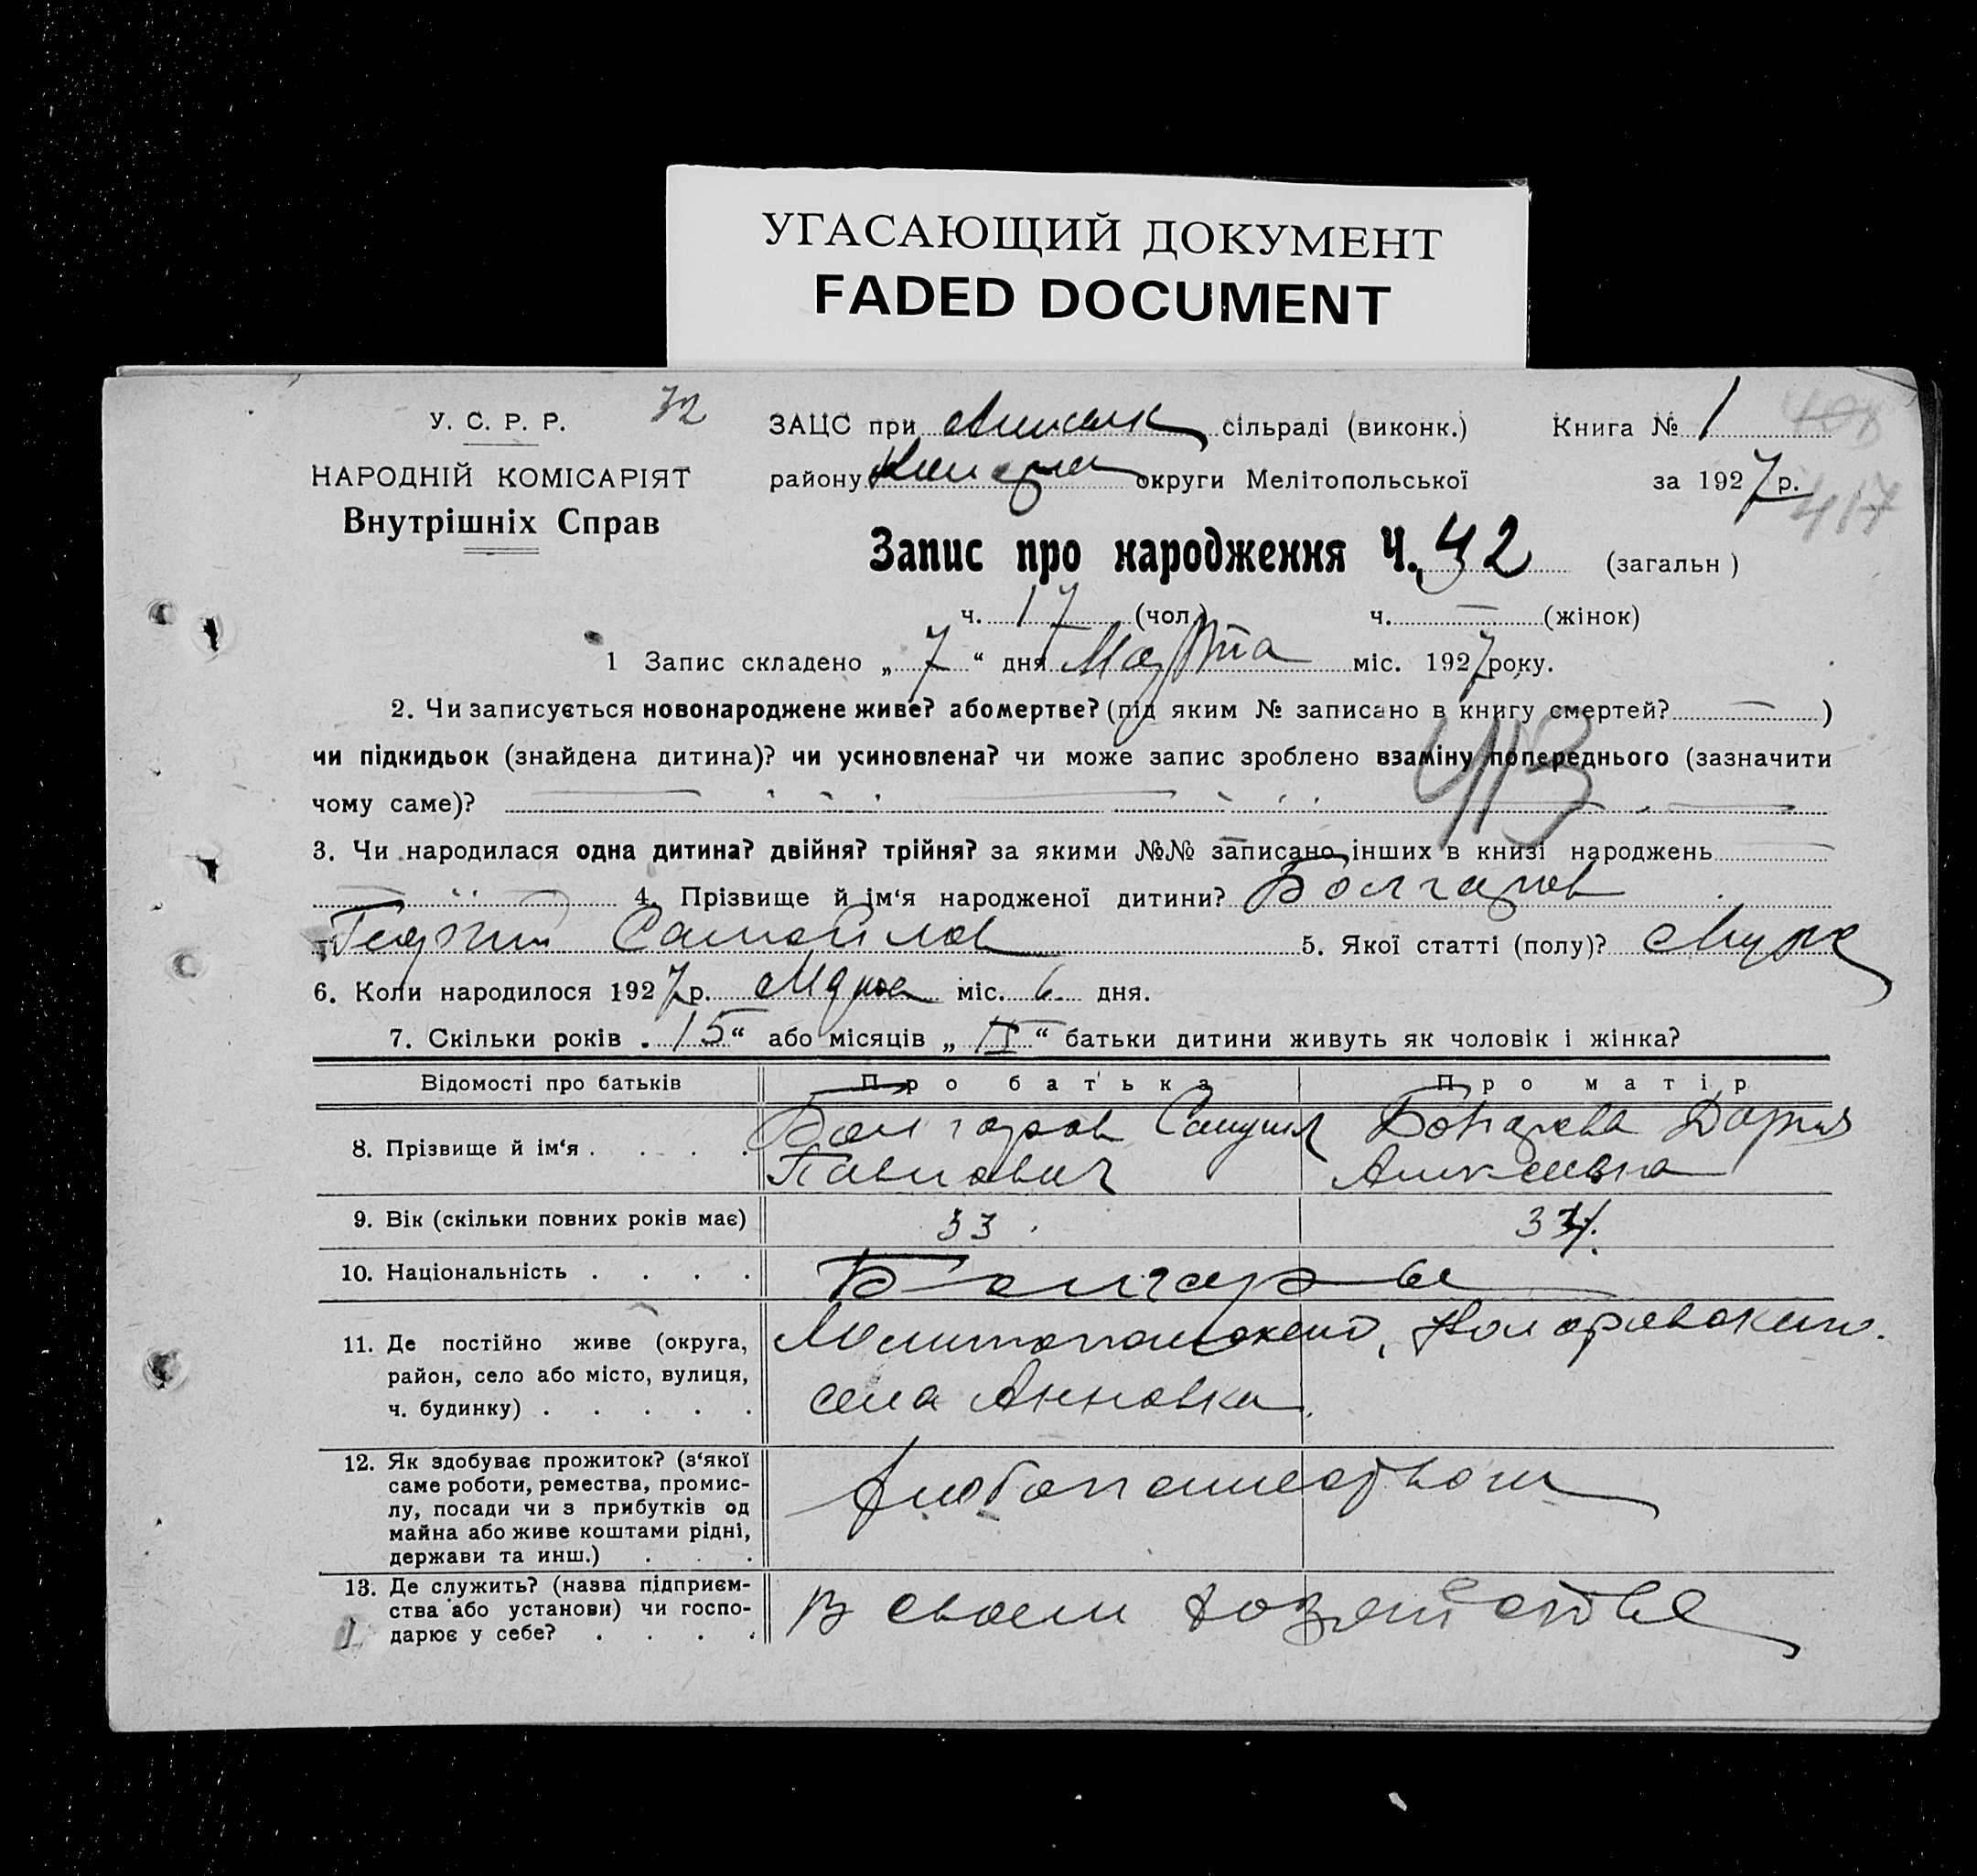 УГАСАЮЩИЙ ДОКУМЕНТ
FADED DOCUMENT
У. С. Р. Р.
32
ЗАЦС при сільраді (виконк.)
Книга № 1
408
НАРОДНІЙ КОМІСАРІЯТ
району округи Мелітопольської
за 1927 р.
417
Внутрішніх Справ
Запис про народження Ч. 42 (загальн)
ч. 17 (чол.) ч. — (жінок)
1 Запис складено „ 7 “ дня Марта міс. 1927 року.
2. Чи записується новонароджене живе? або мертве? (під яким № записано в книгу смертей? — )
чи підкидьок (знайдена дитина)? чи усиновлена? чи може запис зроблено взаміну попереднього (зазначити
чому саме)?
413
3. Чи народилася одна дитина? двійня? трійня? за якими №№ записано інших в книзі народжень
4. Прізвище й ім‘я народженої дитини? Болгаров
Георгий Самойлов 5. Якої статті (полу)? Муж
6. Коли народилося 1927 р. Марта міс. 6 дня.
7. Скільки років „ 15 “ або місяців „ “ батьки дитини живуть як чоловік і жінка?
Відомості про батьків Про батька Про матір
8. Прізвище й ім‘я . . . . Болгаров Самуил Дария
Павлович Алексеевна
9. Вік (скільки повних років має) 33
10. Національність . . . . Болгары
11. Де постійно живе (округа, район, село або місто, вулиця, ч. будинку) . . . . .
Мелитопольского,
села Анновка.
12. Як здобуває прожиток? (з‘якої
саме роботи, ремества, промис-
лу, посади чи з прибутків од
майна або живе коштами рідні,
держави та инш.) . . .
хлебопашеством
13. Де служить? (назва підприєм-
ства або установи) чи госпо-
дарює у себе? . . . .
В своем хозяйстве